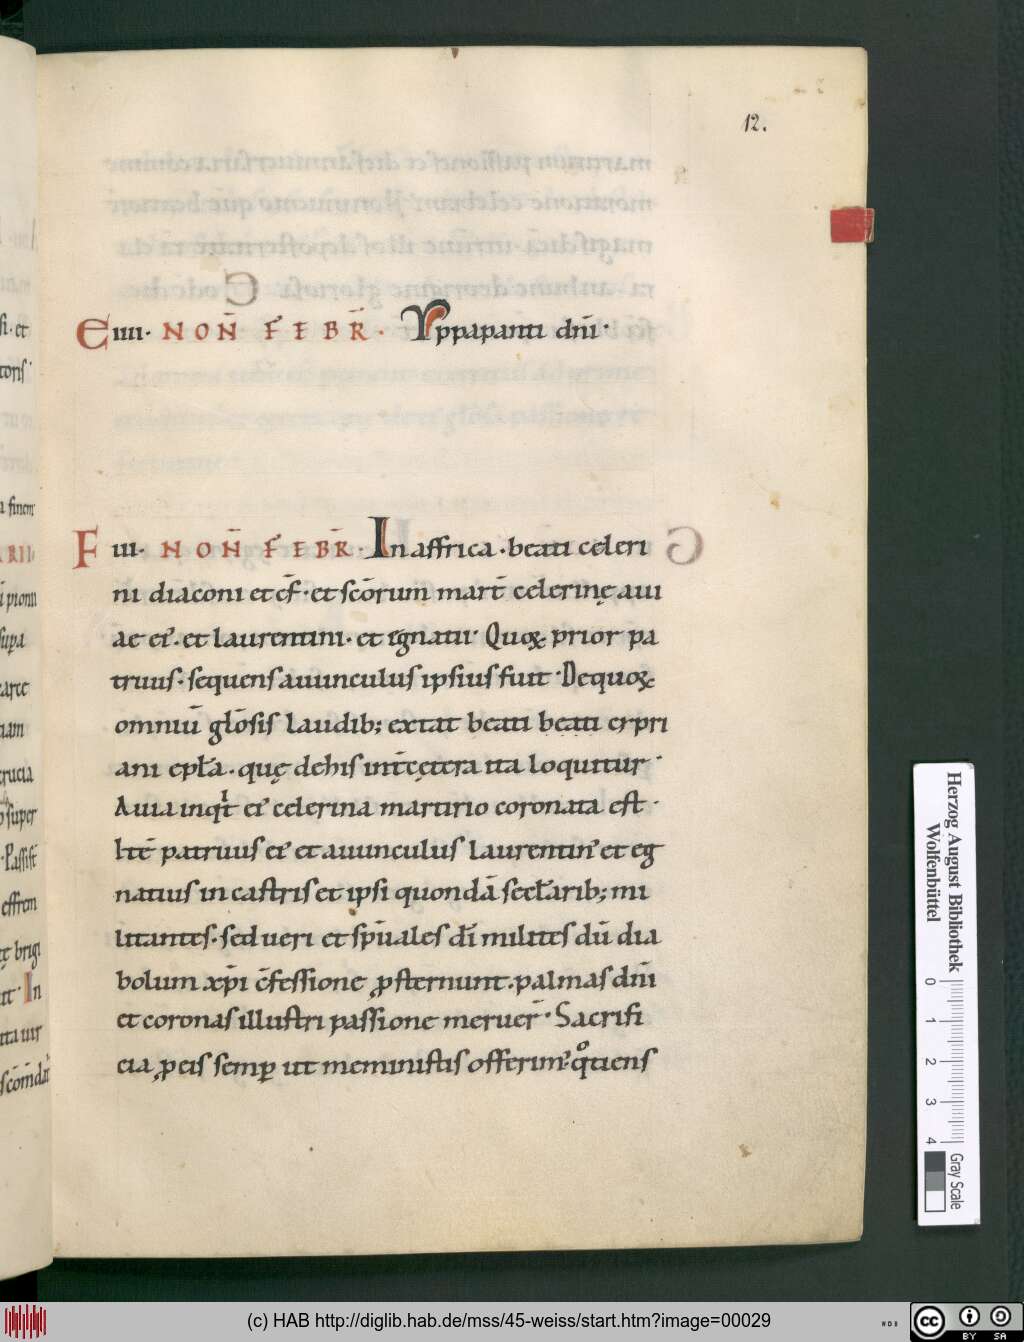 12.
E iiii· NOÑ FEBR̄· Yppapanti dñi·
F iii· NOÑ FEBR̄· In affrica · beati celeri
ni diaconi et c̄f · et sc̄orum mart̄ celerinę aui
ae ei᷒ · et laurentini · et egnatii · Quoꝝ prior pa
truus · sequens auunculus ipsius fuit · De quoꝝ
omniū gl̄osis laudib; extat beati beati cipri
ani epl̄a · quę de his int̄ cętera ita loquitur ·
Auia inqͥt ei᷒ celerina martirio coronata est ·
It̄e patruus ei᷒ et auunculus laurentin᷒ et eg
natius in castris et ipsi quondā secl̄arib; mi
litantes · sed ueri et sp̄uales dī milites dū dia
bolum xp̄i c̄fessione ꝓsternunt · palmas dñi
et coronas illustri passione meruer̄ · Sacrifi
cia ꝓ eis semꝑ ut meministis offerim᷒ qͦtiens
Herzog August Bibliothek
Wolfenbüttel
0 1 2 3 4
Gray Scale
(c) HAB http://diglib.hab.de/mss/45-weiss/start.htm?image=00029
cc BY SA